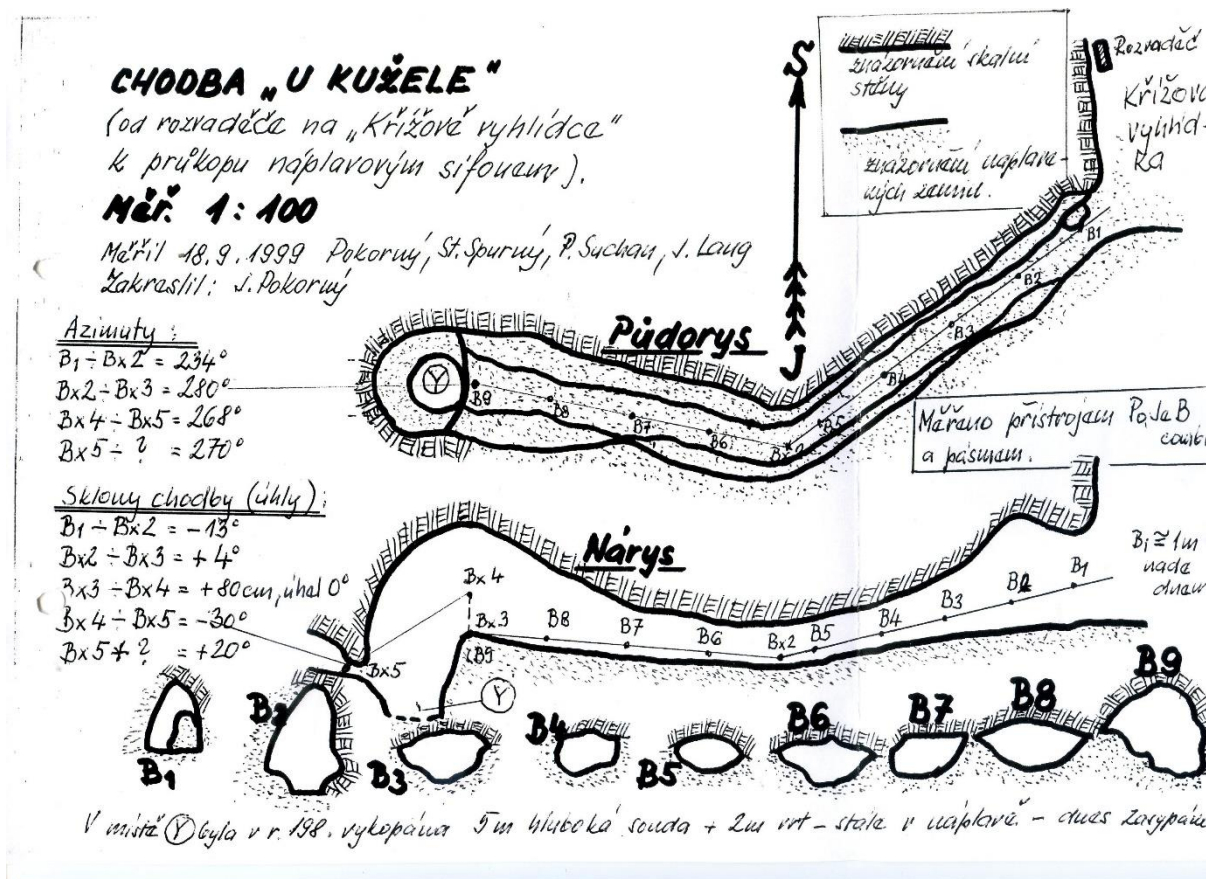 CHODBA „U KUŽELE"
(od rozvaděče na „Křížové vyhlídce"
k průkopu náplavovým sifonem).
Měř. 1:100
Měřil 18.9.1999 Pokorný, St. Spurný, P. Suchan, J. Lang
Zakreslil: J. Pokorný
Azimuty:
B1 ÷ Bx2 = 234°
Bx2 ÷ Bx3 = 280°
Bx4 ÷ Bx5 = 268°
Bx5 ÷ ? = 270°
Sklony chodby (úhly):
B1 ÷ Bx2 = -13°
Bx2 ÷ Bx3 = +4°
Bx3 ÷ Bx4 = +80cm, úhel 0°
Bx4 ÷ Bx5 = -30°
Bx5 ÷ ? = +20°
S
J
znázornění skalní
stěny
znázornění naplave-
ných zemin.
Rozvaděč
Křížová
vyhlíd-
ka
Půdorys
Y
B9
B8
B7
B6
Bx2
B5
B4
B3
B2
B1
Měřeno přístrojem
a pásmem.
Nárys
Bi ≅ 1m
nade
dnem
Bx4
Bx3
B9
B8
B7
B6
Bx2
B5
B4
B3
B2
B1
Bx5
Y
B1
B2
B3
B4
B5
B6
B7
B8
B9
V místě Y byla v r. 198. vykopána 5m hluboká sonda + 2m vrt - stále v náplavě - dnes